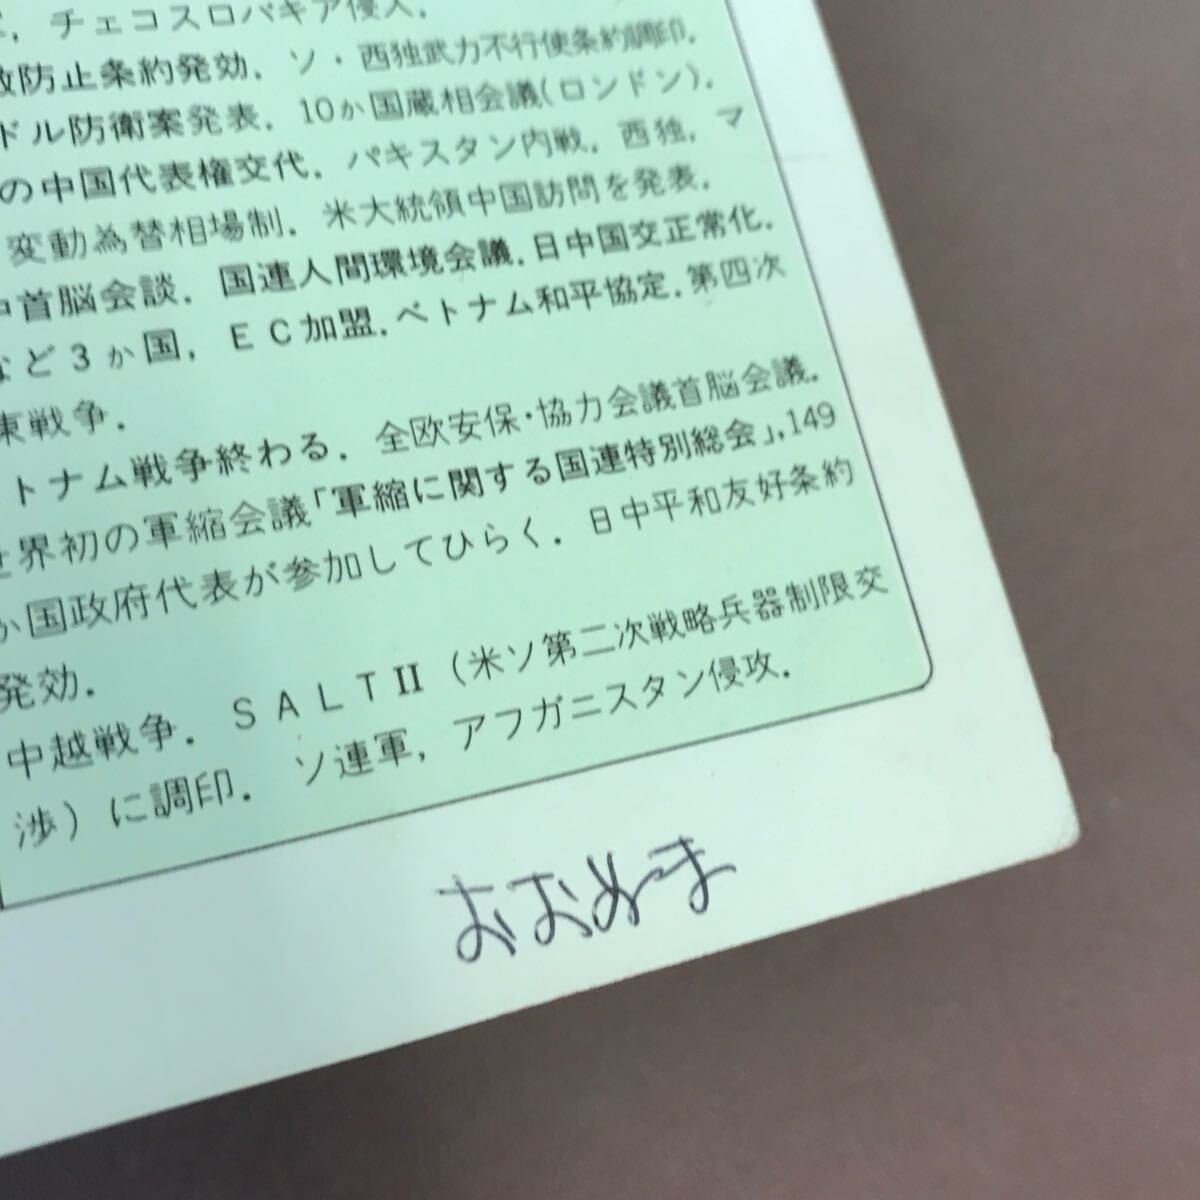 チェコスロバキア侵入.
防止条約発効. ソ・西独武力不行使条約調印.
ドル防衛案発表. 10か国蔵相会議(ロンドン).
の中国代表権交代. パキスタン内戦. 西独, マ
変動為替相場制. 米大統領中国訪問を発表.
首脳会談. 国連人間環境会議. 日中国交正常化.
など3か国, EC加盟. ベトナム和平協定. 第四次
東戦争.
トナム戦争終わる. 全欧安保・協力会議首脳会議.
世界初の軍縮会議「軍縮に関する国連特別総会」, 149
か国政府代表が参加してひらく. 日中平和友好条約
発効.
中越戦争. SALTⅡ(米ソ第二次戦略兵器制限交
渉)に調印. ソ連軍, アフガニスタン侵攻.
おおぬま